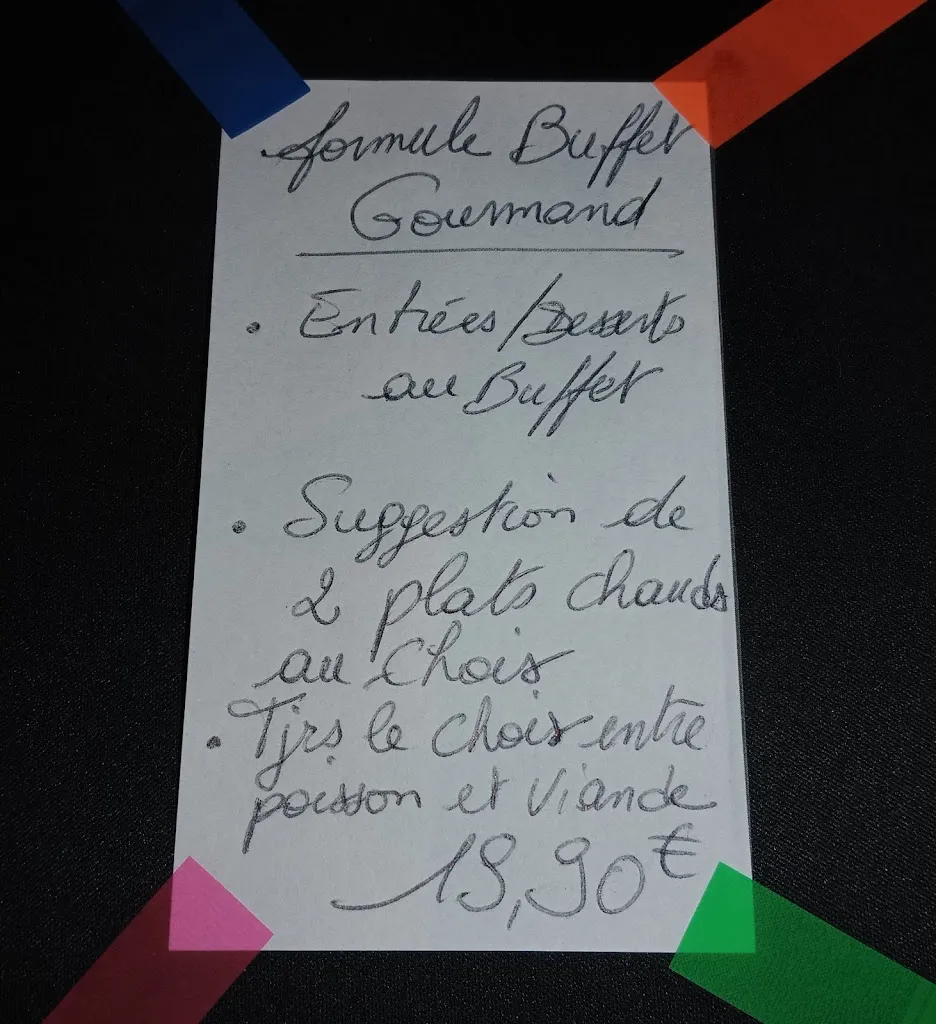 formule Buffet
Gourmand
• Entrées/Desserts
au Buffet
• Suggestion de
2 plats chauds
au Choix
• Tjrs le choix entre
poisson et viande
19,90€